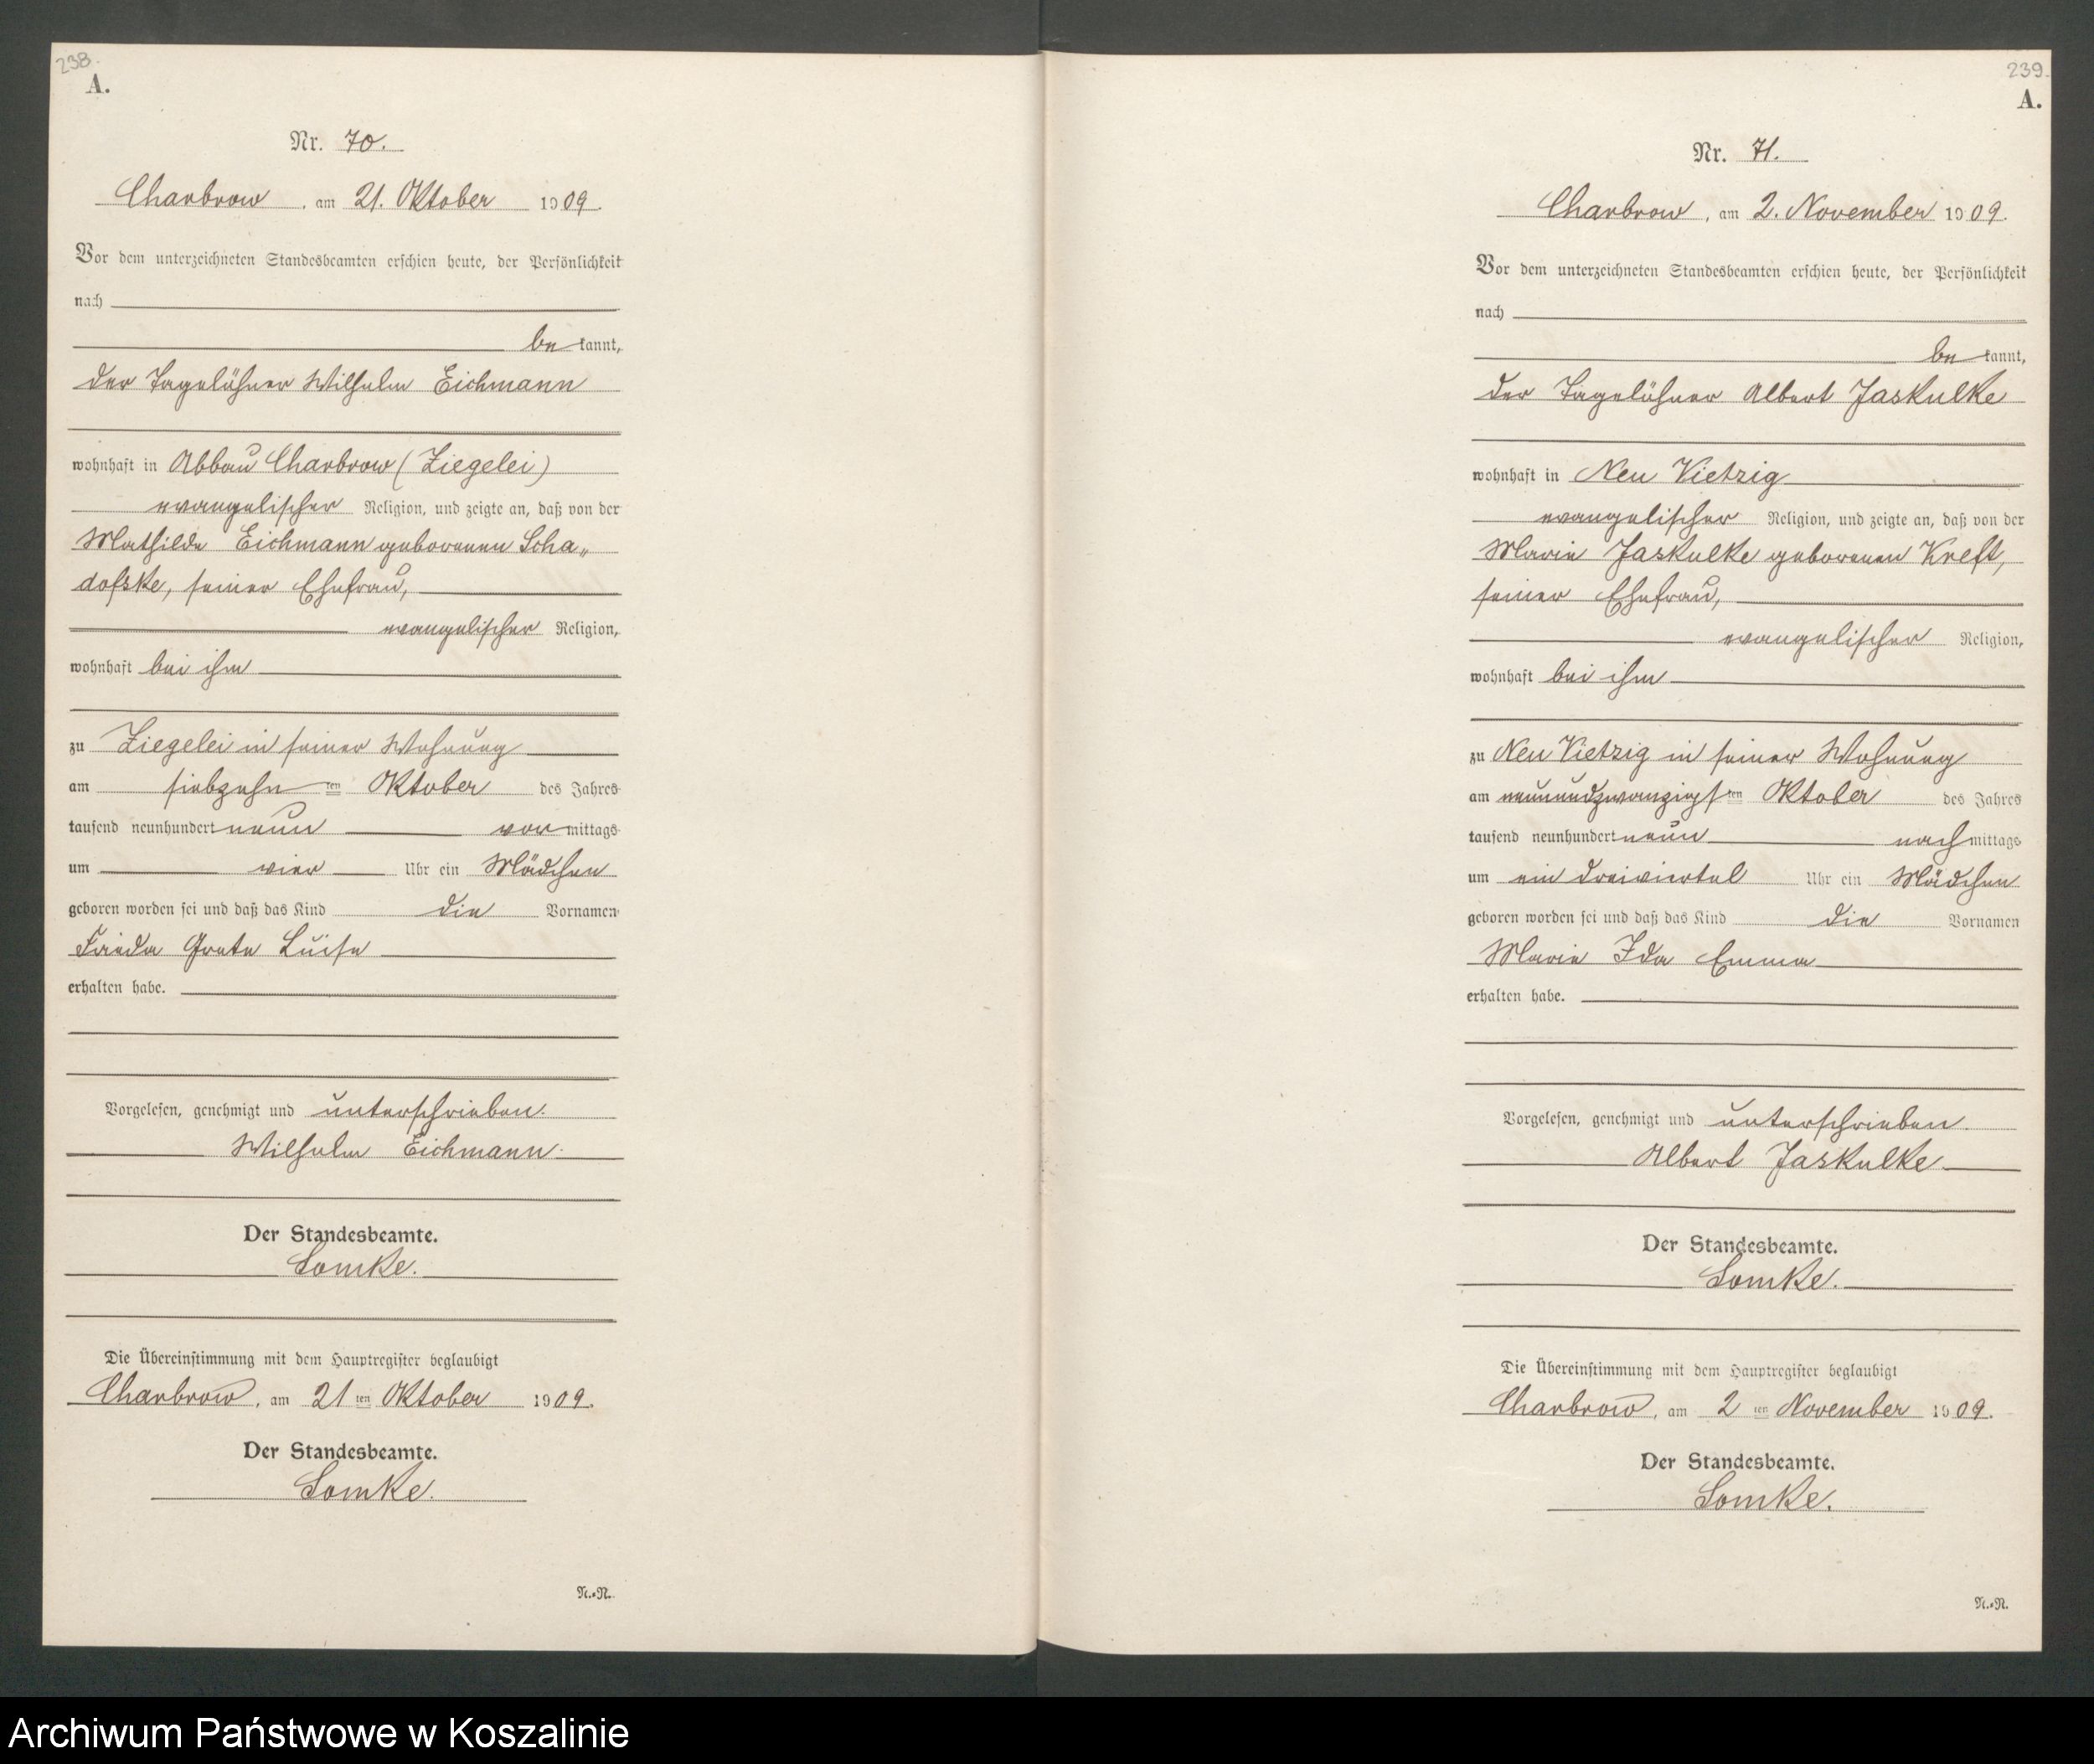 238.
A.
Nr. 70.
Charbrow, am 21. Oktober 1909.
Vor dem unterzeichneten Standesbeamten erschien heute, der Persönlichkeit
nach
be kannt,
der Tagelöhner Wilhelm Eichmann
wohnhaft in Abbau Charbrow (Ziegelei)
evangelischer Religion, und zeigte an, daß von der
Mathilde Eichmann geborenen Scha„
dofske, seiner Ehefrau,
evangelischer Religion,
wohnhaft bei ihm
zu Ziegelei in seiner Wohnung
am siebzehn ten Oktober des Jahres
tausend neunhundert neun vormittags
um vier Uhr ein Mädchen
geboren worden sei und daß das Kind die Vornamen
Frieda Grete Luise
erhalten habe.
Vorgelesen, genehmigt und unterschrieben.
Wilhelm Eichmann.
Der Standesbeamte.
Lomke.
Die Übereinstimmung mit dem Hauptregister beglaubigt
Charbrow, am 21 ten Oktober 1909.
Der Standesbeamte.
Lomke.
N.=N.
239.
A.
Nr. 71.
Charbrow, am 2. November 1909.
Vor dem unterzeichneten Standesbeamten erschien heute, der Persönlichkeit
nach
be kannt,
der Tagelöhner Albert Jaskulke
wohnhaft in Neu Vietzig
evangelischer Religion, und zeigte an, daß von der
Marie Jaskulke geborenen Kreft,
seiner Ehefrau,
evangelischer Religion,
wohnhaft bei ihm
zu Neu Vietzig in seiner Wohnung
am neunundzwanzigsten Oktober des Jahres
tausend neunhundert neun nachmittags
um ein dreiviertel Uhr ein Mädchen
geboren worden sei und daß das Kind die Vornamen
Marie Ida Emma
erhalten habe.
Vorgelesen, genehmigt und unterschrieben.
Albert Jaskulke
Der Standesbeamte.
Lomke.
Die Übereinstimmung mit dem Hauptregister beglaubigt
Charbrow, am 2 ten November 1909.
Der Standesbeamte.
Lomke.
N.=N.
Archiwum Państwowe w Koszalinie